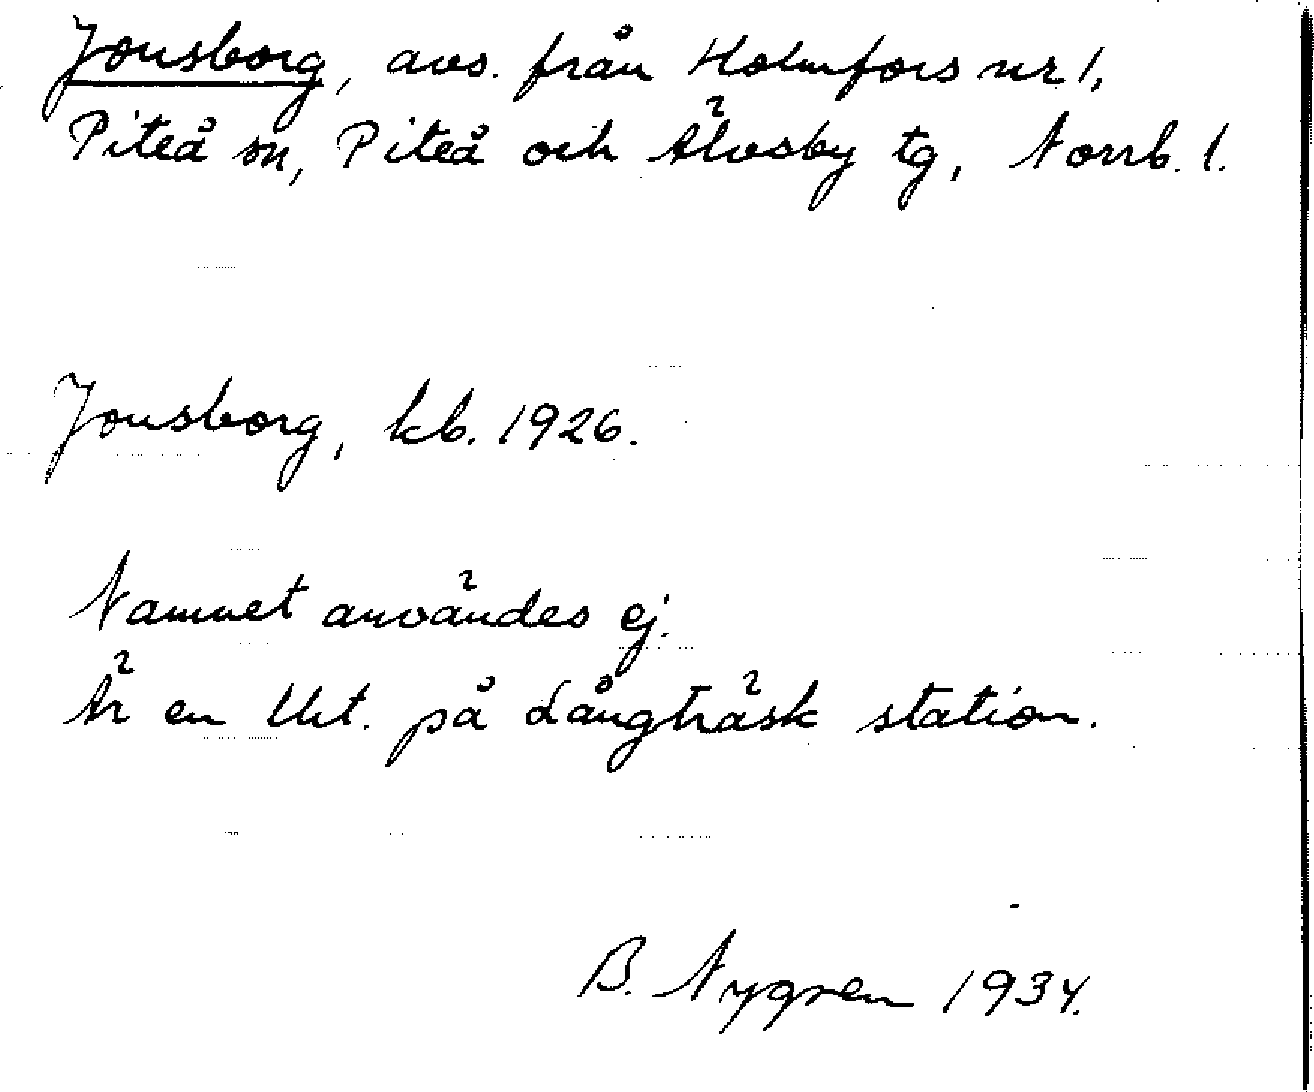 Jonsborg, avs. från Holmfors nr 1,
Piteå sn, Piteå och Älvsby tg, Norrb. l.
Jonsborg, kb. 1926.
Namnet användes ej.
Är en tht. på Långträsk station.
B. Nygren 1934.